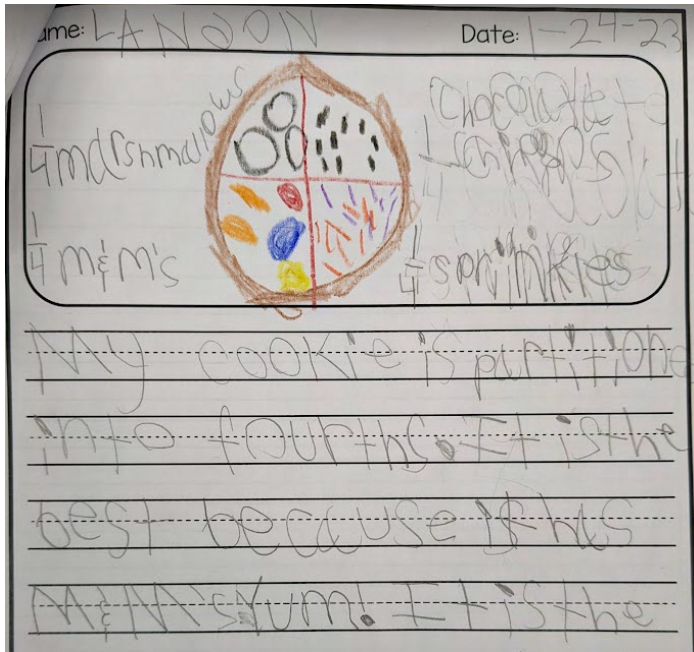 ame: LANDON Date: 1-24-23
1/4 marshmallows
Chocolate
1/4 chips
1/4 m&m's
1/4 sprinkles
My cookie is partitione
into fourths. It is the
best because it has
M&M's Yum! It is the